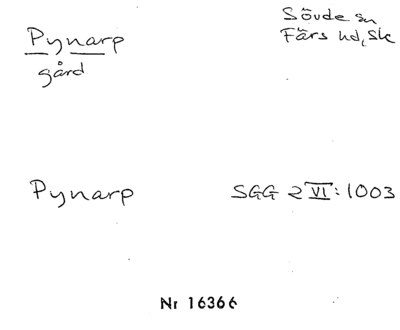 Pynarp
gård
Sövde sn
Färs hd, Sk
Pynarp
SGG 2 VI: 1003
Nr 16366